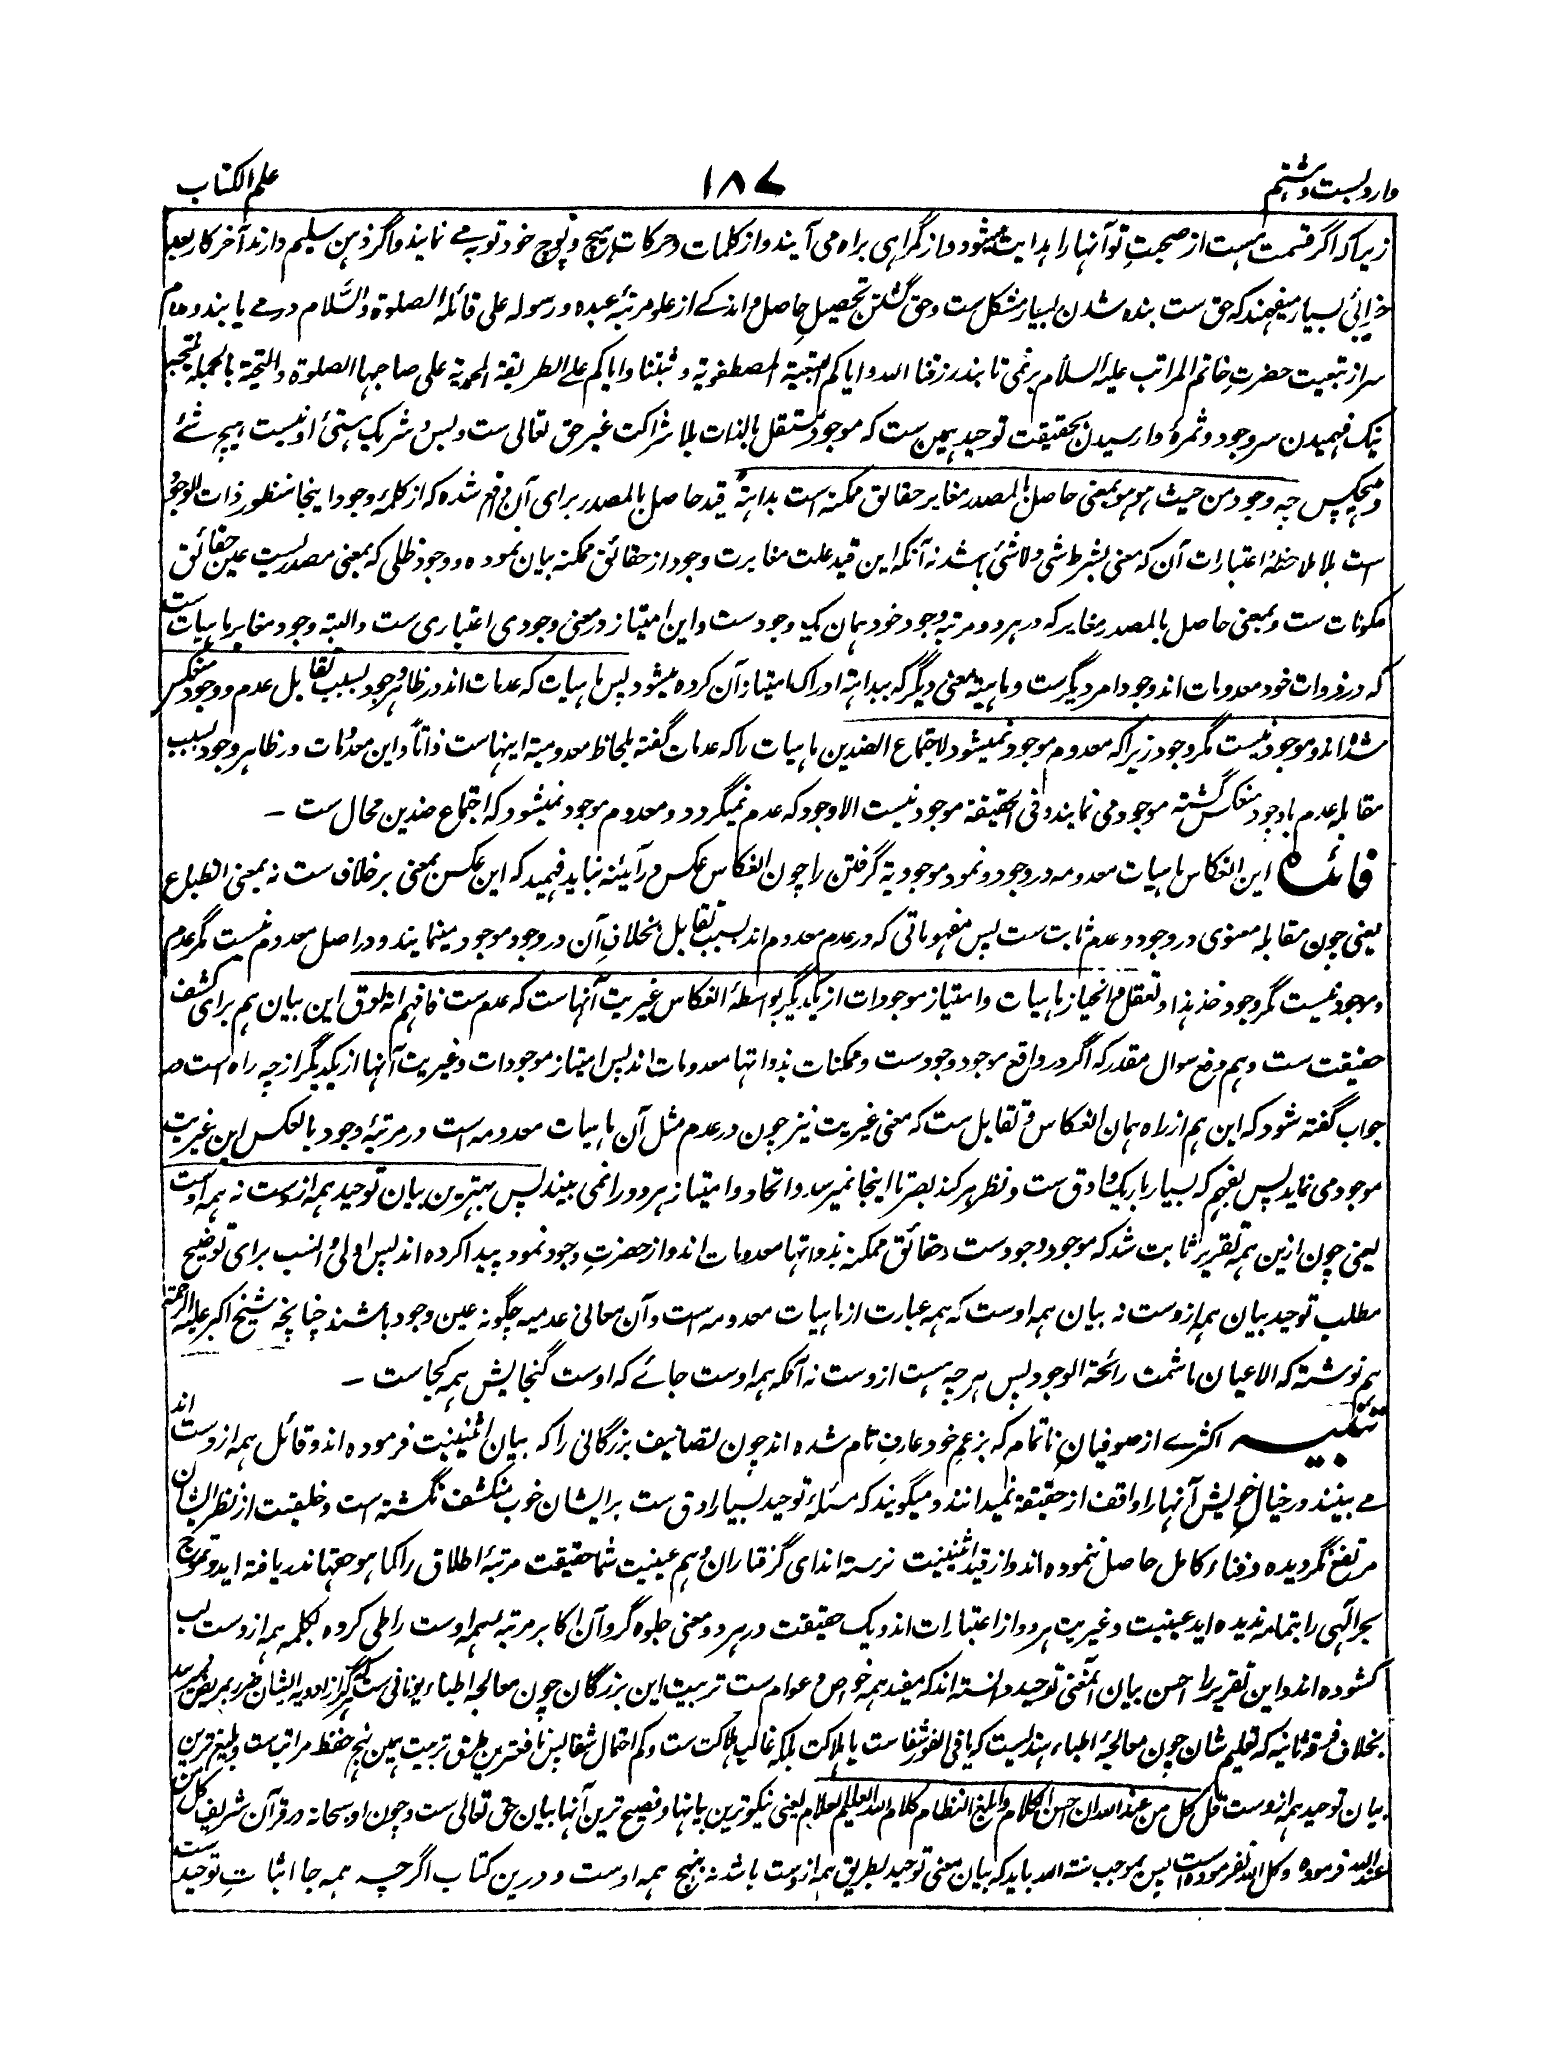 وارد بست و هشتم
۱۸۷
علم الکتاب
زیرا که اگر قسمت هست از صحبتِ تو آنها را هدایت میشود و از گمراهی براه می آیند و از کلمات و حرکات هیچ و پوچ خود توبه مے نمایند و اگر ذهن سلیم دارند آخر کار بعد
خرابئی بسیار میفهمند که حق ست بنده شدن بسیار مشکل ست و حق گشتن تحصیل حاصل و اند کے از علو مرتبۂ عبده و رسوله علی قائله الصلوة والسَّلام در مے یابند و مدام
سر از تبعیت حضرتِ خاتم المراتب علیه السلام بر نمی تابند رزقنا الله و ایاکم التبعیة المصطفویة و ثبتنا و ایاکم علے الطریقة المحمدیة علی صاحبها الصلوة والتحیة بالجمله نتیجۂ
نیک فهمیدن سر وجود و ثمرۀ وارسیدن بحقیقت توحید همین ست که موجود مستقل بالذات بلا شراکت غیر حق تعالی ست و بس و شریک هستئ او نیست هیچ شئے
و هیچکس چه وجود من حیث هو هو بمعنی حاصل بالمصدر مغایر حقائق ممکنه است بداهةً قید حاصل بالمصدر برای آن واقع شده که از کلمۂ وجود اینجا منظور ذات الوجود
است بلا ملاحظۂ اعتبارات آن که معنی بشرط شی و لا شئ باشد نه آنکه این قید علت مغایرت وجود از حقائق ممکنه بیان نموده و وجود ظلی که بمعنی مصدریست عین حقائق
مکونات ست و بمعنی حاصل بالمصدر مغایر که در هر دو مرتبه وجود خود همان یک وجود ست و این امتیاز در معنی وجودی اعتباری ست و البته وجود مغایر ماهیات ست
که در ذوات خود معدومات اند وجود امر دیگر ست و ماهیة معنی دیگر که ببداهة ادراک امتیاز آن کرده میشود پس ماهیات که عدمات اند در ظاهر وجود بسبب تقابل عدم و وجود منعکس
شده اند و موجود نیست مگر وجود زیرا که معدوم موجود نمیشود لاجتماع الضدین ماهیات را که عدمات گفته بلحاظ معدومیة اینهاست ذاتاً و این معدومات در ظاهر وجود بسبب
مقابلۂ عدم با وجود منعکس گشته موجود می نمایند و فی الحقیقة موجود نیست الا وجود که عدم نمیگردد و معدوم موجود نمیشود که اجتماع ضدین محال ست –
فائده این انعکاس ماهیات معدومه در وجود و نمود موجودیة گرفتن را چون انعکاس عکس در آیٔنه نباید فهمید که این عکس بمعنی بر خلاف ست نه بمعنی انطباع
یعنی چون مقابلۂ معنوی در وجود و عدم ثابت ست پس مفهوماتی که در عدم معدوم اند بسبب تقابل بخلافِ آن در وجود موجود مینمایند و در اصل معدوم نیست مگر عدم
و موجود نیست مگر وجود خذ هذا و تعقل و انحیاز ماهیات و امتیاز موجودات از یکدیگر بواسطۂ انعکاس غیریت آنهاست که عدم ست فافهم انه لحق این بیان هم برای کشف
حقیقت ست و هم دفع سوال مقدر که اگر در واقع موجود وجود ست و ممکنات بذواتها معدومات اند پس امتیاز موجودات و غیریت آنها از یکدیگر از چه راه است
جواب گفته شود که این هم از راه همان انعکاس و تقابل ست که معنی غیریت نیز چون در عدم مثل آن ماهیات معدومه است در مرتبۂ وجود بالعکس این غیریت
موجود می نماید پس بفهم که بسیار باریک و ادق ست و نظر هر کند بصر تا اینجا نمیرسد و اتحاد و امتیاز هر دو را نمی بیند پس بهترین بیان توحید همه از وست نه همه اوست
یعنی چون ازین همه تقریر ثابت شد که موجود وجود ست و حقائق ممکنه بذواتها معدومات اند و از حضرتِ وجود نمود پیدا کرده اند پس اولی و انسب برای توضیح
مطلب توحید بیان همه از وست نه بیان همه اوست که همه عبارت از ماهیات معدومه است و آن معانی عدمیه چگونه عین وجود باشند چنانچه شیخ اکبر علیه الرحمة
هم نوشته که الاعیان ما شمت رائحة الوجود پس هر چه هست از وست نه آنکه همه اوست جائے که اوست گنجایش همه کجاست –
تنبیه اکثرے از صوفیانِ ناتمام که بزعمِ خود عارفِ تام شده اند چون تصانیف بزرگانی را که بیان اثنینیت فرموده اند و قائل همه از وست اند
مے بینند در خیال خویش آنها را واقف از حقیقة نمیدانند و میگویند که مسئله توحید بسیار ادق ست بر ایشان خوب منکشف نگشته است و خلقیت از نظر ایشان
مرتفع نگردیده و فناء کامل حاصل ننموده اند و از قید اثنینیت نرسته اند ای گرفتاران وهم عینیت شما حقیقت مرتبۂ اطلاق را کما هو حقها ندریافته اید و تموج
بحر آلهی را بتمامه ندیده اید عینیت و غیریت هر دو از اعتبارات اند و یک حقیقت در هر دو معنی جلوه گر و آن اکابر مرتبۂ همه اوست را طی کرده بکلمه همه از وست لب
کشوده اند و این تقریر را احسن بیان المعنی توحید دانسته اند که مفید همه خواص و عوام ست تربیت این بزرگان چون معالجه اطباء یونانی ست که هرگز از ادویه ایشان ضرر بمریض نمیرسد
بخلاف فرقۂ ثانیه که تعلیم شان چون معالجۂ اطباء هندیست که یا فی الفور شفاست یا هلاکت بلکه غالب هلاکت ست و کم احتمال شفا پس نافع ترین طرق تربیت همین نهج حفظ مراتب ست و بلیغ ترین
بیان توحید همه از وست قل کل من عند الله ان احسن الکلام و ابلغ النظام کلام الله العلیم العلام یعنی نیکو ترین بیانها و فصیح ترین آنها بیان حق تعالی ست و چون او سبحانه در قرآن شریف کل من
عند الله فرموده و کل الله نفرموده است پس بموجب سنة الله باید که بیان معنی توحید بطریق همه از وست باشد نه بنهج همه اوست و درین کتاب اگر چه همه جا اثباتِ توحید ست